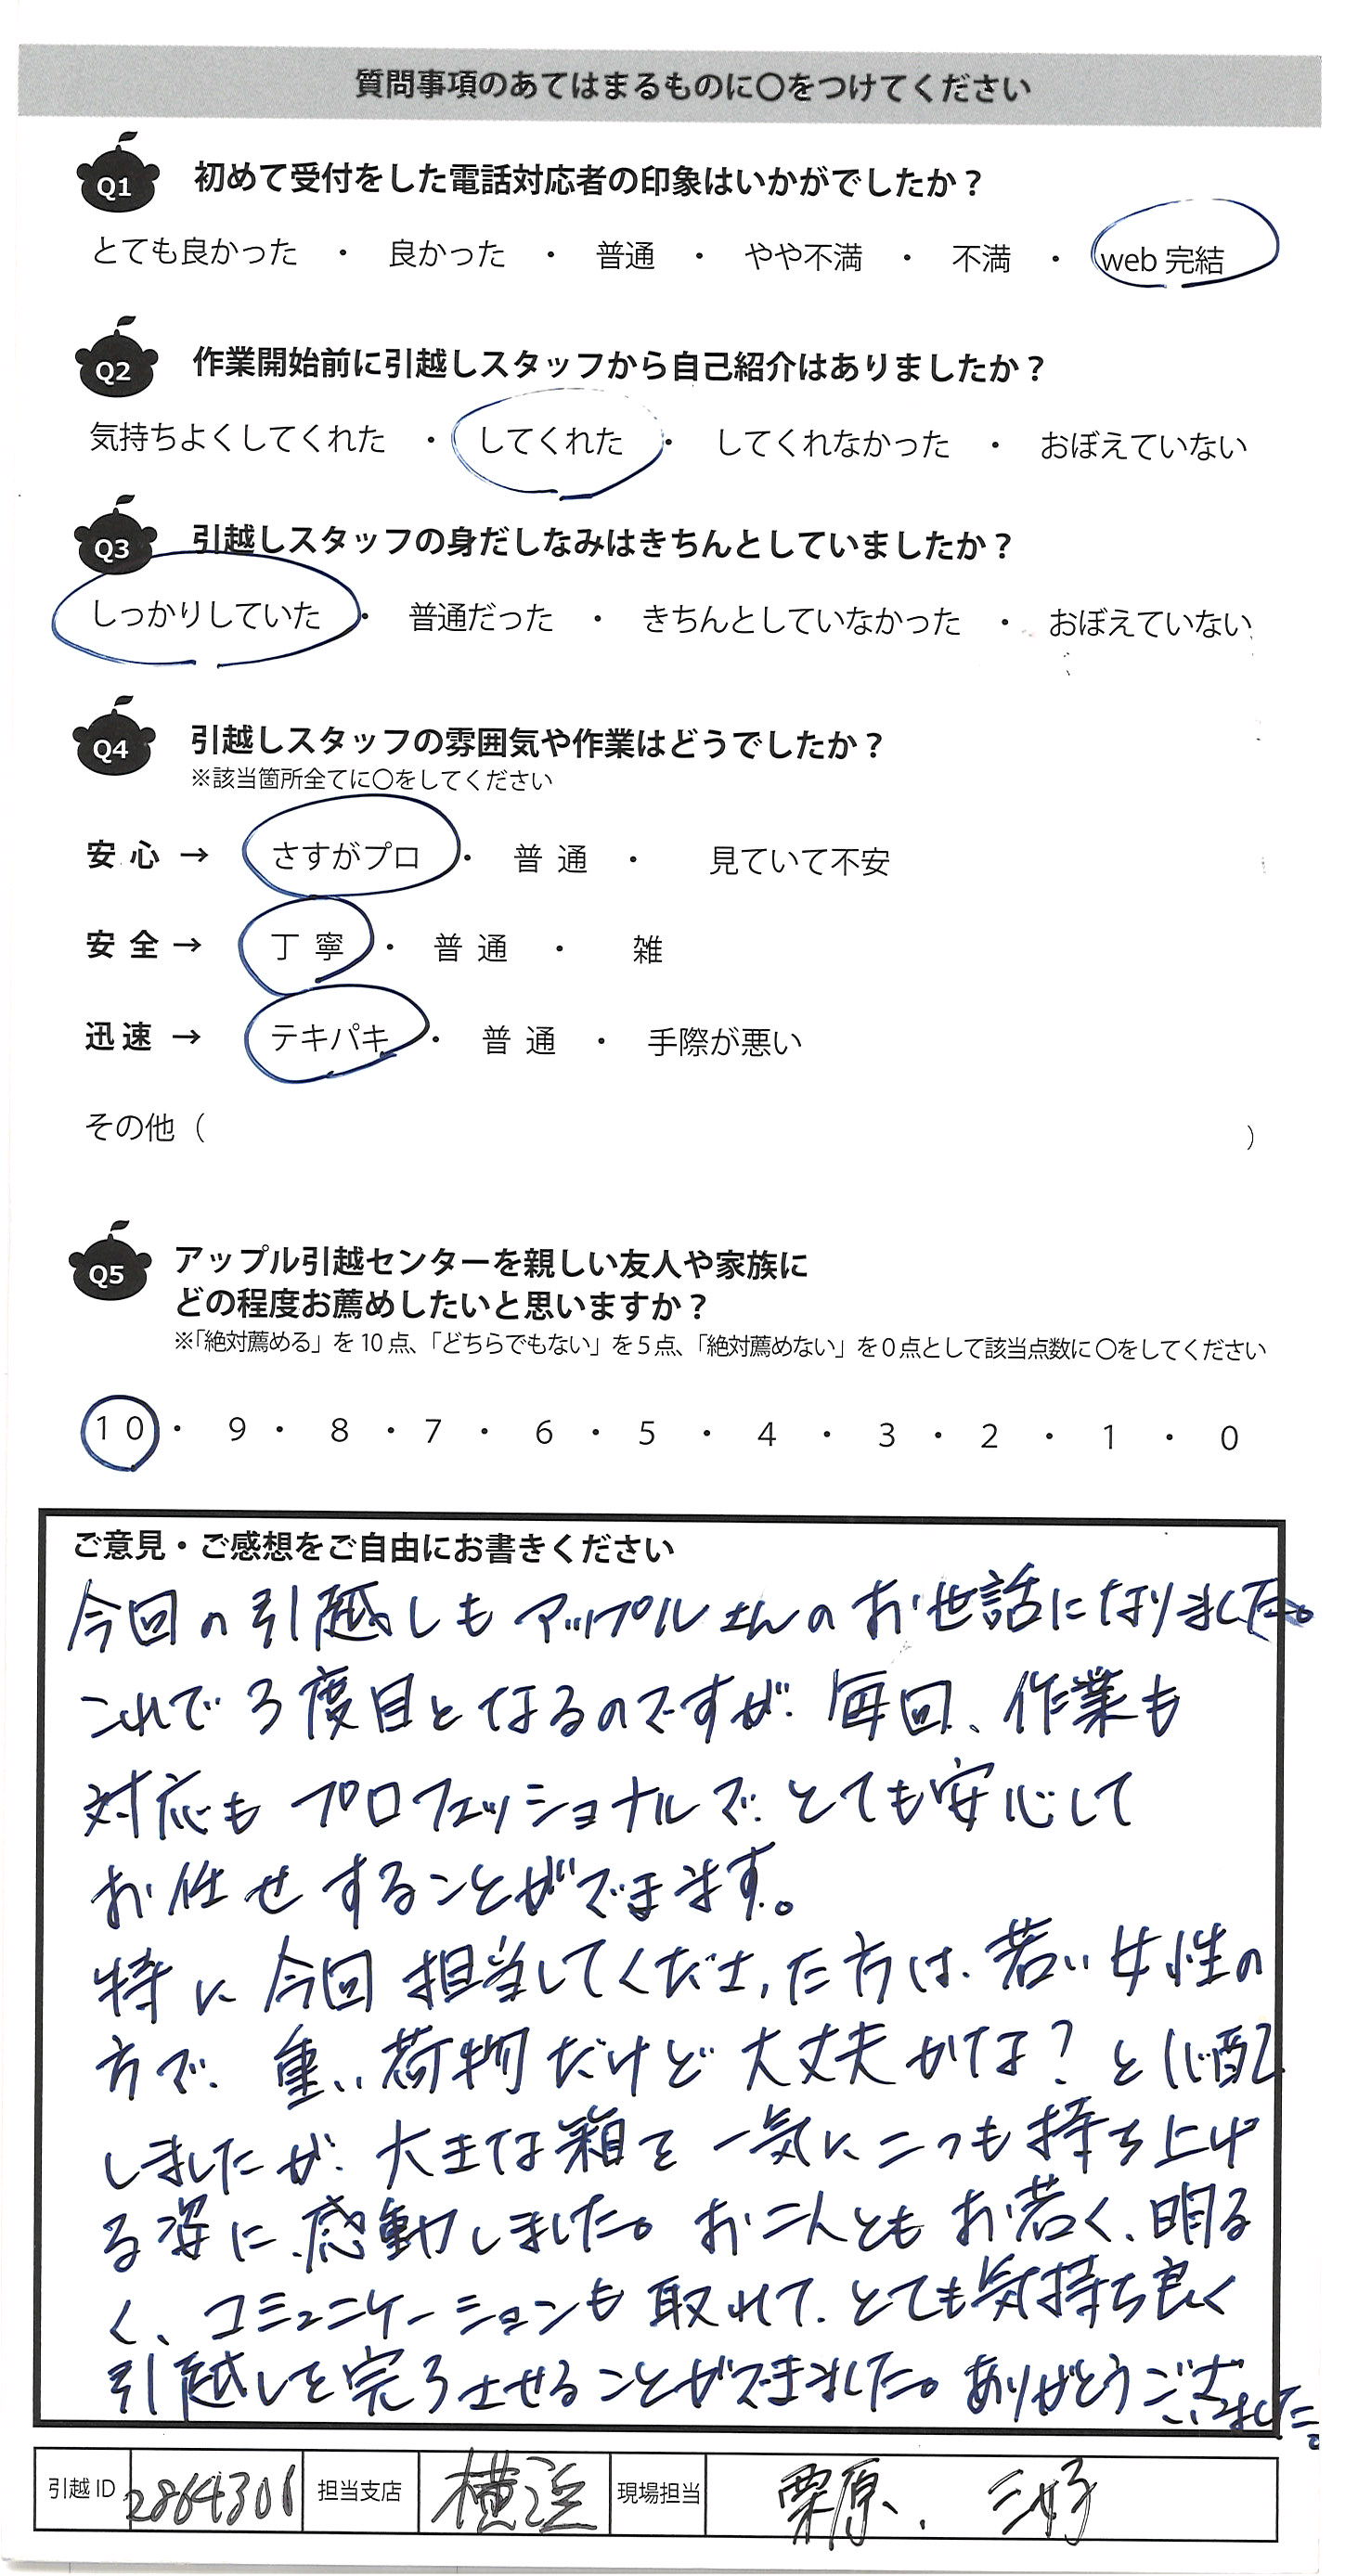 質問事項のあてはまるものに〇をつけてください
Q1 初めて受付をした電話対応者の印象はいかがでしたか？
とても良かった ・ 良かった ・ 普通 ・ やや不満 ・ 不満 ・ web 完結
Q2 作業開始前に引越しスタッフから自己紹介はありましたか？
気持ちよくしてくれた ・ してくれた ・ してくれなかった ・ おぼえていない
Q3 引越しスタッフの身だしなみはきちんとしていましたか？
しっかりしていた ・ 普通だった ・ きちんとしていなかった ・ おぼえていない
Q4 引越しスタッフの雰囲気や作業はどうでしたか？
※該当箇所全てに〇をしてください
安心 → さすがプロ ・ 普通 ・ 見ていて不安
安全 → 丁寧 ・ 普通 ・ 雑
迅速 → テキパキ ・ 普通 ・ 手際が悪い
その他（ ）
Q5 アップル引越センターを親しい友人や家族に
どの程度お薦めしたいと思いますか？
※「絶対薦める」を10点、「どちらでもない」を5点、「絶対薦めない」を0点として該当点数に〇をしてください
10 ・ 9 ・ 8 ・ 7 ・ 6 ・ 5 ・ 4 ・ 3 ・ 2 ・ 1 ・ 0
ご意見・ご感想をご自由にお書きください
今回の引越しもアップルさんのお世話になりました。
これで3度目となるのですが、毎回、作業も
対応もプロフェッショナルで、とても安心して
お任せすることができます。
特に今回担当してくださった方は、若い女性の
方で、重い荷物だけど大丈夫かな？と心配
しましたが、大きな箱を一気に二つも持ち上げ
る姿に、感動しました。お二人ともお若く、明る
く、コミュニケーションも取れて、とても気持ち良く
引越しを完了させることができました。ありがとうございました。
引越ID 2864301 担当支店 横浜 現場担当 栗原、三好